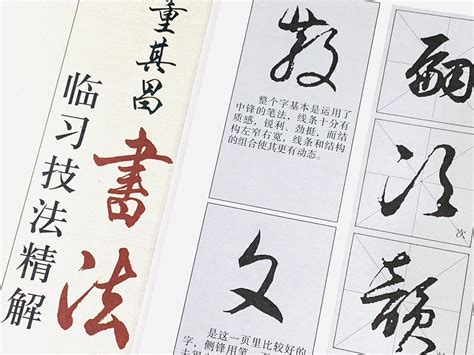 董其昌
書法
临习技法精解
散
整个字基本是运用了
中锋的笔法，线条十分有
质感，锐利、劲挺，而结
构左窄右宽，线条和结构
的组合使其更有动态。
文
是这一页里比较好的
字，侧锋用笔
次
次